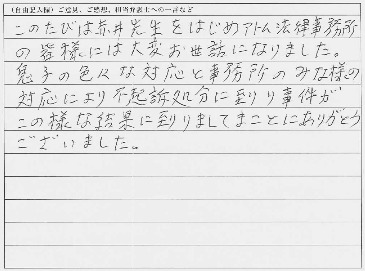 (自由記入欄) ご意見、ご感想、担当弁護士への一言など
このたびは赤井先生をはじめアトム法律事務所
の皆様には大変お世話になりました。
息子の色々な対応と事務所のみな様の
対応により不起訴処分に至りり事件が
この様な結果に至りましてまことにありがとう
ございました。